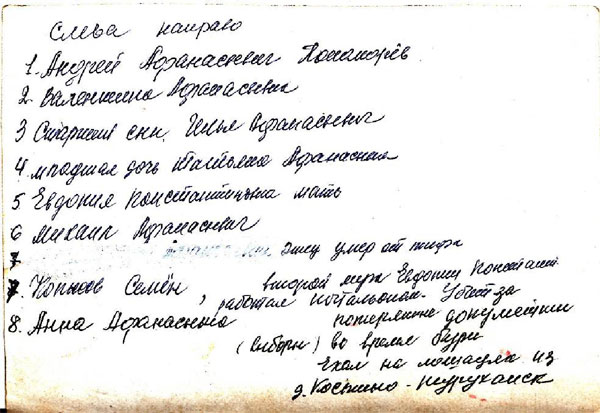 Слева направо
1. Андрей Афанасьевич Пономарёв
2. Валентина Афанасьевна
3 Старший сын. Илья Афанасьевич
4 младшая дочь Татьяна Афанасьевна
5 Евдокия Константиновна мать
6 Михаил Афанасьевич
7 отец умер от тифа
7. Копылов Семён, второй муж Евдокии Констант
работал почтальоном. Убит за
8. Анна Афанасьевна потерянные документы
(выборы) во время бури
Ехал на лошадях из
д. Костино - Туруханск